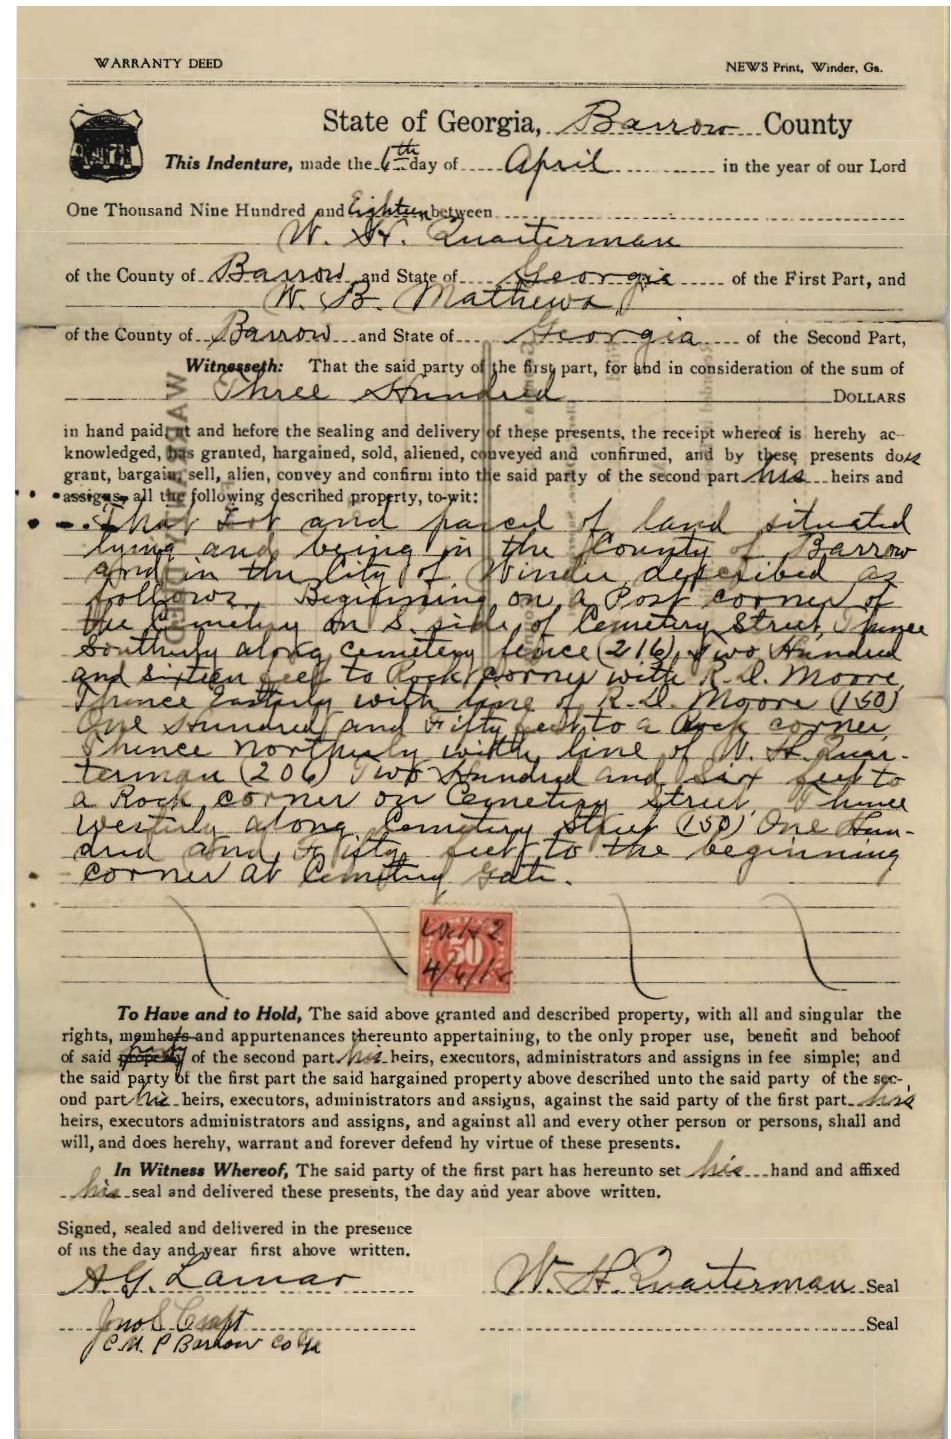 WARRANTY DEED
NEWS Print, Winder, Ga.
State of Georgia, Barrow County
This Indenture, made the 6th day of April in the year of our Lord
One Thousand Nine Hundred and Eighteen between
W. H. Quarterman
of the County of Barrow and State of Georgia of the First Part, and
W. B. Mathews
of the County of Barrow and State of Georgia of the Second Part,
Witnesseth: That the said party of the first part, for and in consideration of the sum of
Three Hundred DOLLARS
in hand paid, at and before the sealing and delivery of these presents, the receipt whereof is hereby ac-
knowledged, has granted, bargained, sold, aliened, conveyed and confirmed, and by these presents does
grant, bargain, sell, alien, convey and confirm into the said party of the second part his heirs and
assigns, all the following described property, to-wit:
That Lot and parcel of land situated
lying and being in the County of Barrow
and in the City of Winder, described as
follows, Beginning on a Post corner of
the Cemetery on S. side of Cemetery Street, Thence
Southerly along cemetery fence (216) Two Hundred
and sixteen feet to Rock corner with R. D. Moore,
Thence Easterly with line of R. D. Moore (150)
One Hundred and Fifty feet to a Rock corner,
Thence Northerly with line of W. H. Quar-
terman (206) Two Hundred and six feet to
a Rock corner on Cemetery Street, Thence
Westerly along Cemetery Street (150) One Hun-
dred and Fifty feet to the beginning
corner at Cemetery Gate.
50
4/6/18
To Have and to Hold, The said above granted and described property, with all and singular the
rights, members and appurtenances thereunto appertaining, to the only proper use, benefit and behoof
of said property party of the second part his heirs, executors, administrators and assigns in fee simple; and
the said party of the first part the said bargained property above described unto the said party of the sec-
ond part his heirs, executors, administrators and assigns, against the said party of the first part his
heirs, executors administrators and assigns, and against all and every other person or persons, shall and
will, and does hereby, warrant and forever defend by virtue of these presents.
In Witness Whereof, The said party of the first part has hereunto set his hand and affixed
his seal and delivered these presents, the day and year above written.
Signed, sealed and delivered in the presence
of us the day and year first above written.
A. G. Lamar
W. H. Quarterman Seal
Jno S Craft
Seal
Barrow Co Ga